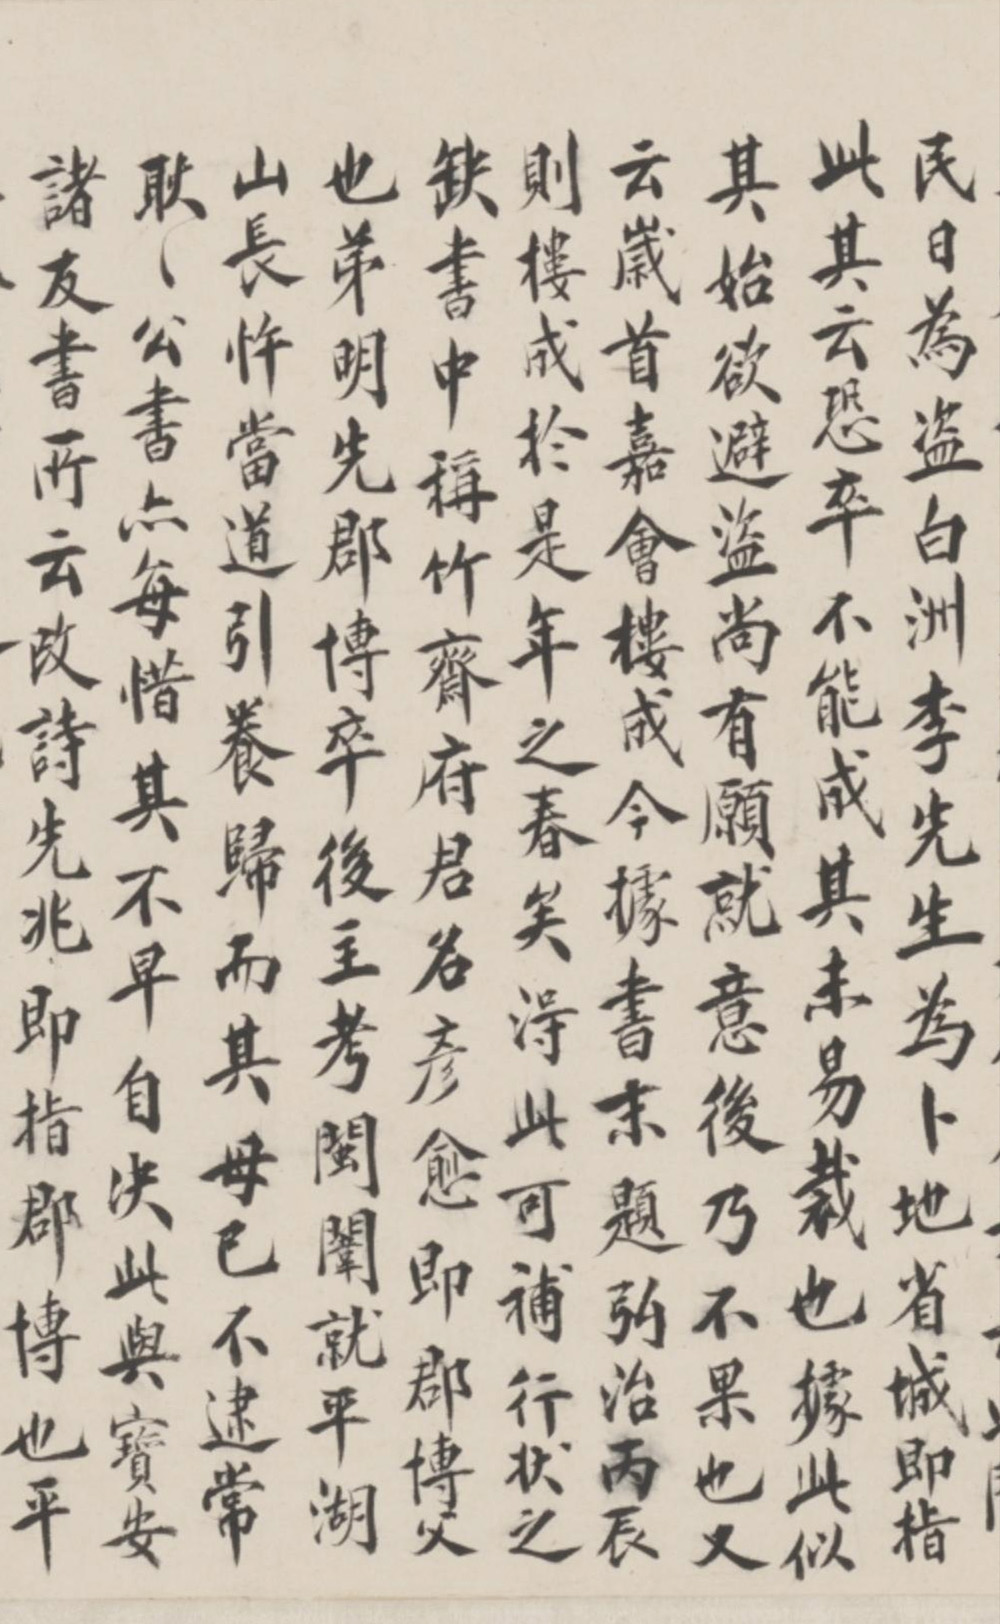 民日為盜白洲李先生為卜地省城即指
此其云恐卒不能成其未易裁也據此似
其始欲避盜尚有願就意後乃不果也又
云歲首嘉會樓成今據書末題弘治丙辰
則樓成於是年之春矣得此可補行狀之
缺書中稱竹齋府君名彥愈即郡博父
也弟明先郡博卒後主考閩闈就平湖
山長忤當道引養歸而其母已不逮常
耿〻公書亦每惜其不早自決此與寶安
諸友書所云改詩先兆即指郡博也平